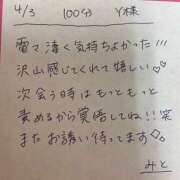 4/3 100分 Y様
電マ凄く気持ちよかった!!!
沢山感じてくれて嬉しい♡♡
次会う時はもっともっと
責めるから覚悟してね!!笑
またお誘い待ってます♡。
みと